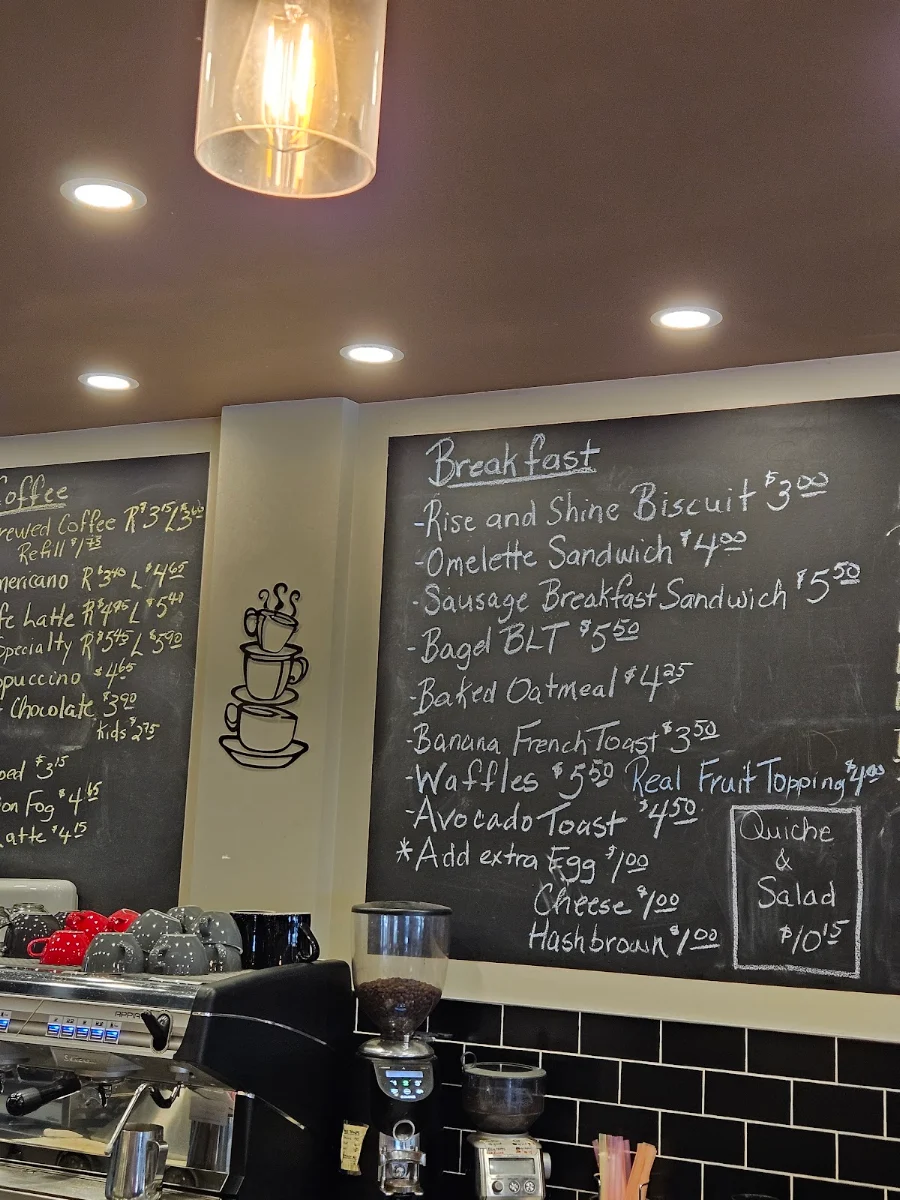 Coffee
rewed Coffee R $3.15 L $3.60
Refill $1.75
mericano R $3.40 L $4.65
fe Latte R $4.95 L $5.40
Specialty R $5.45 L $5.90
ppuccino $4.65
Chocolate $3.90
kids $2.75
$3.15
on Fog $4.65
Latte $4.15
Breakfast
-Rise and Shine Biscuit $3.00
-Omelette Sandwich $4.00
-Sausage Breakfast Sandwich $5.50
-Bagel BLT $5.50
-Baked Oatmeal $4.25
-Banana French Toast $3.50
-Waffles $5.50 Real Fruit Topping $4.00
-Avocado Toast $4.50
*Add extra Egg $1.00
Cheese $1.00
Hashbrown $1.00
Quiche
&
Salad
$10.15